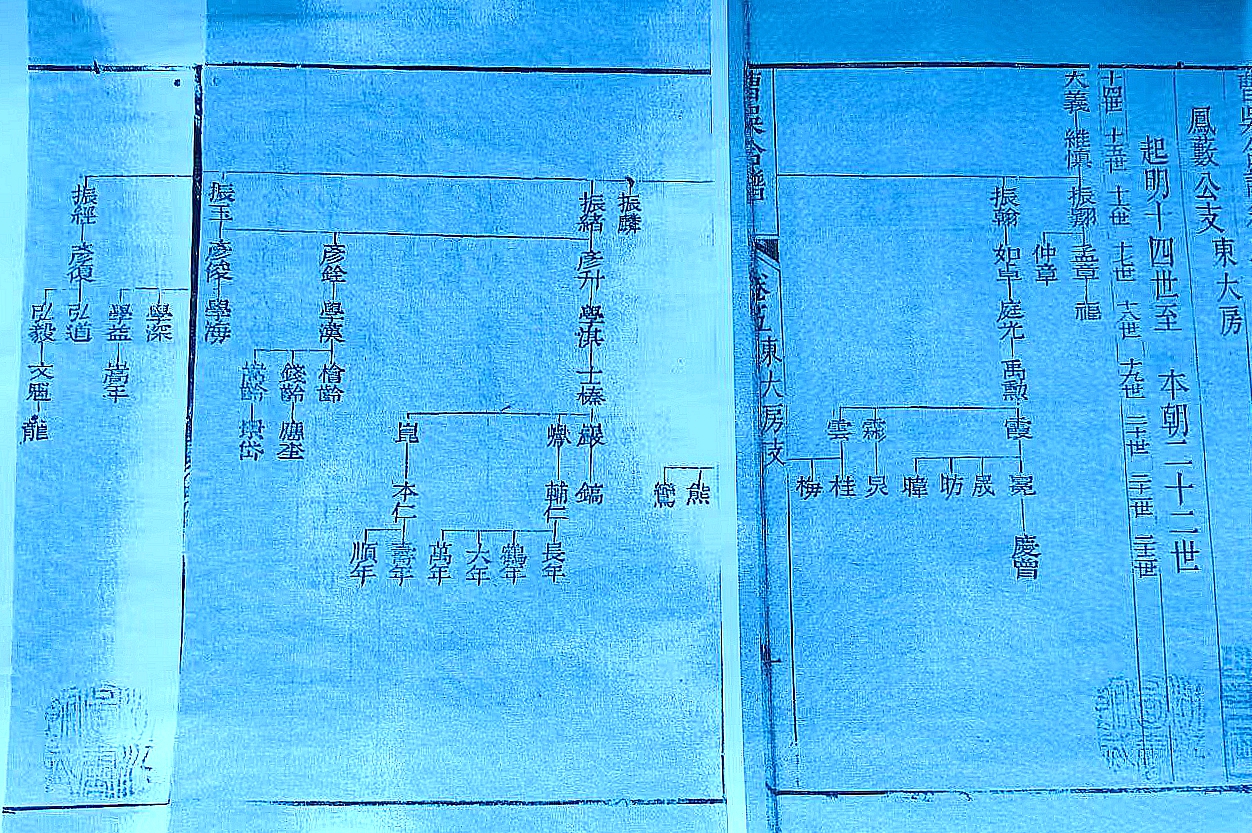 鳳藪公支
東大房
起明十四世至
本朝二十二世
十四世
十五世
十六世
十七世
十八世
十九世
二十世
二十一世
二十二世
大義
維慎
振翺
孟章
福
仲章
振翰
如卓
庭光
禹勲
霞
亮
慶曾
晟
昉
暐
霖
炅
雲
桂
梅
卷五
東大房支
熊
鸞
振麟
振緒
彥升
學淇
士榛
巖
鎬
嶽
輔仁
長年
鶴年
大年
萬年
崑
本仁
壽年
順年
彥銓
學漢
檜齡
錢齡
振玉
彥俊
學海
學深
學益
嵩年
振經
弘道
弘毅
文
龍